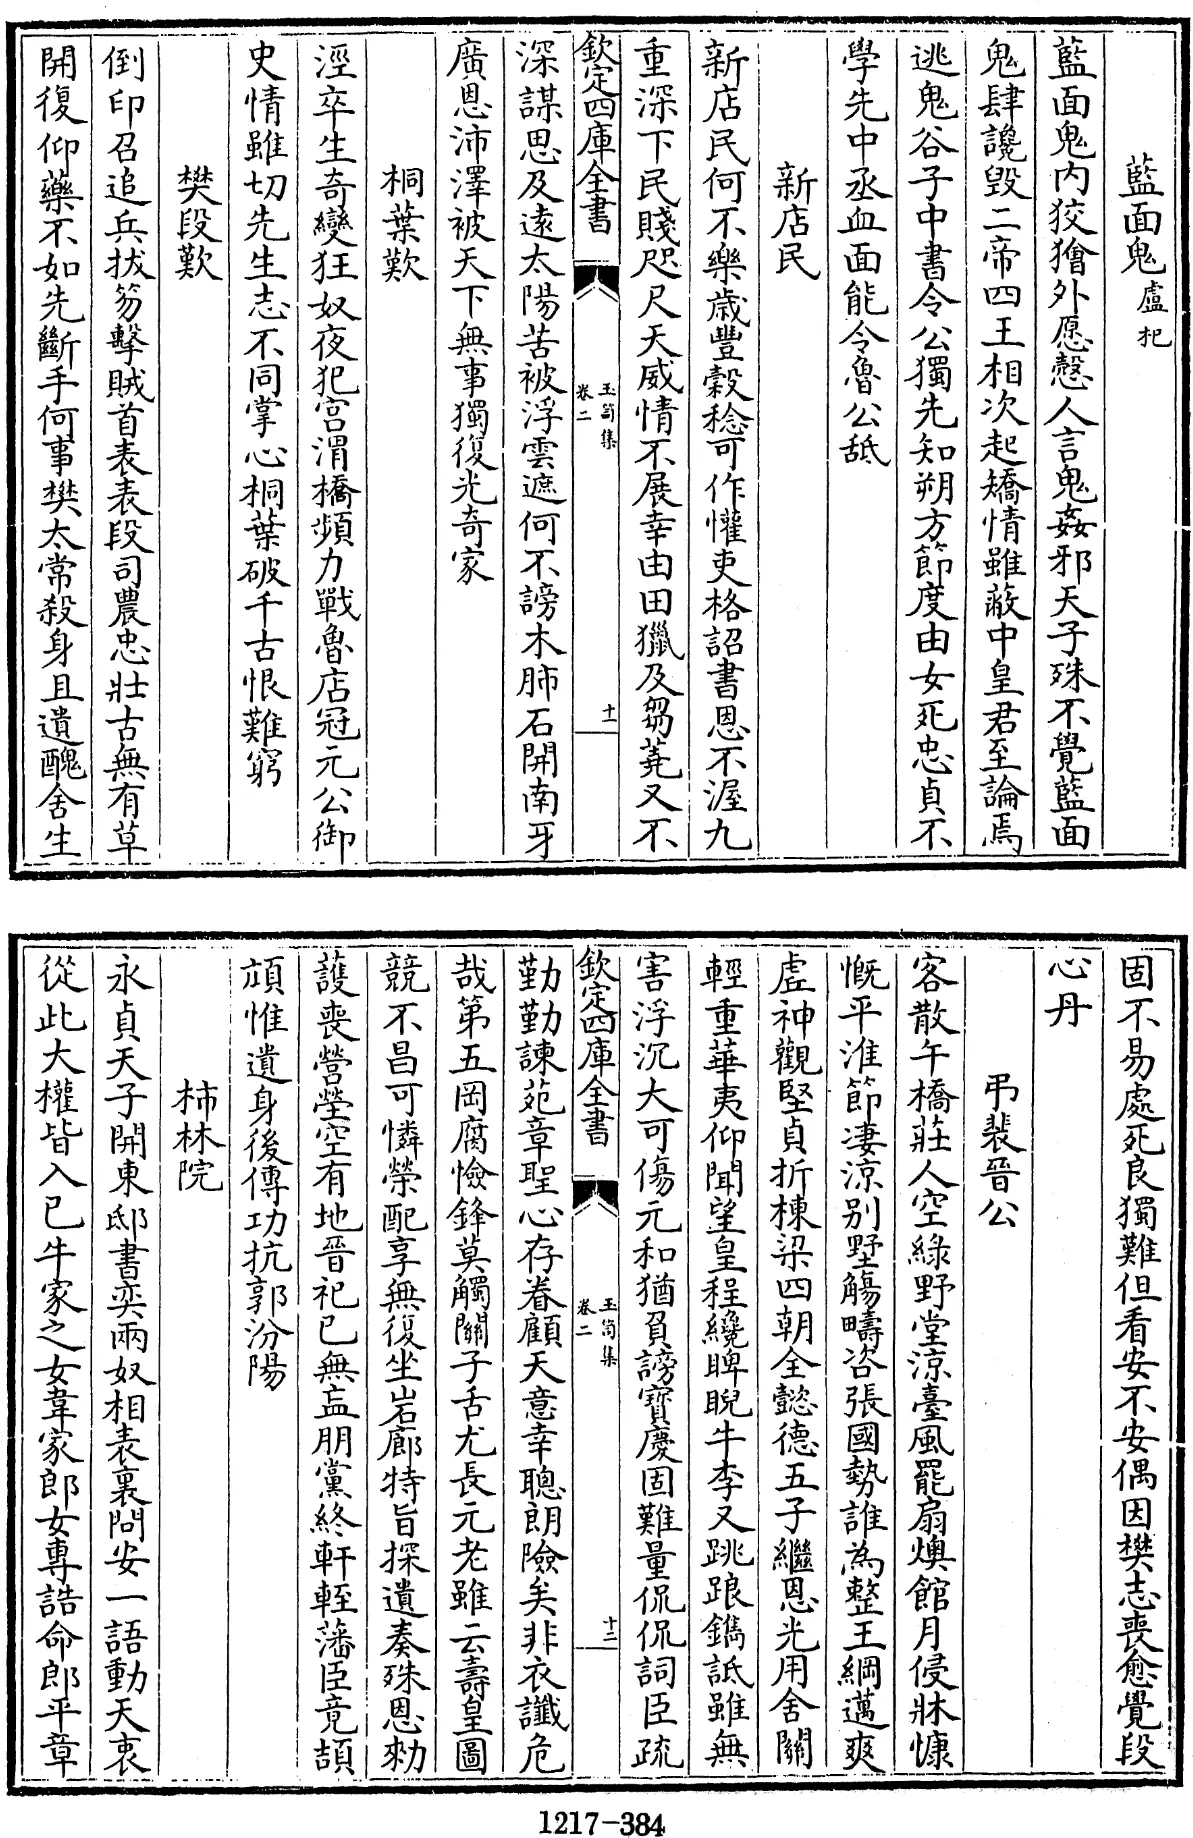 藍面鬼盧杞
藍面鬼内狡獪外愿慤人言鬼姦邪天子殊不覺藍面
鬼肆讒毀二帝四王相次起矯情雖蔽中皇君至論焉
逃鬼谷子中書令公獨先知朔方節度由女死忠貞不
學先中丞血面能令魯公舐
新店民
新店民何不樂歳豐穀稔可作懽吏格詔書恩不渥九
重深下民賤咫尺天威情不展幸由田獵及芻蕘又不
欽定四庫全書
玉笥集
卷二
十一
深謀思及遠太陽苦被浮雲遮何不謗木肺石開南牙
廣恩沛澤被天下無事獨復光奇家
桐葉歎
涇卒生奇變狂奴夜犯宫渭橋頻力戰魯店冠元公御
史情雖切先生志不同掌心桐葉破千古恨難窮
樊段歎
倒印召追兵拔笏擊賊首表表段司農忠壯古無有草
開復仰藥不如先斷手何事樊太常殺身且遺醜舍生
固不易處死良獨難但看安不安偶因樊志喪愈覺段
心丹
弔裴晉公
客散午橋莊人空緑野堂涼臺風罷扇燠館月侵牀慷
慨平淮節凄涼别墅觴疇咨張國勢誰為整王綱邁爽
虛神觀堅貞折棟梁四朝全懿德五子繼恩光用舍關
輕重華夷仰聞望皇程纔睥睨牛李又跳踉鐫詆雖無
害浮沉大可傷元和猶負謗寶慶固難量侃侃詞臣疏
欽定四庫全書
玉笥集
卷二
十二
勤勤諫苑章聖心存眷顧天意幸聰朗險矣非衣讖危
哉第五岡腐憸鋒莫觸關子舌尤長元老雖云壽皇圖
競不昌可憐榮配享無復坐岩廊特旨探遺奏殊恩勑
護喪營塋空有地晉祀已無盲朋黨終軒輊藩臣竟頡
頏惟遺身後傳功抗郭汾陽
柿林院
永貞天子開東邸書奕兩奴相表裏問安一語動天衷
從此大權皆入已牛家之女韋家郎女專誥命郎平章
1217-384